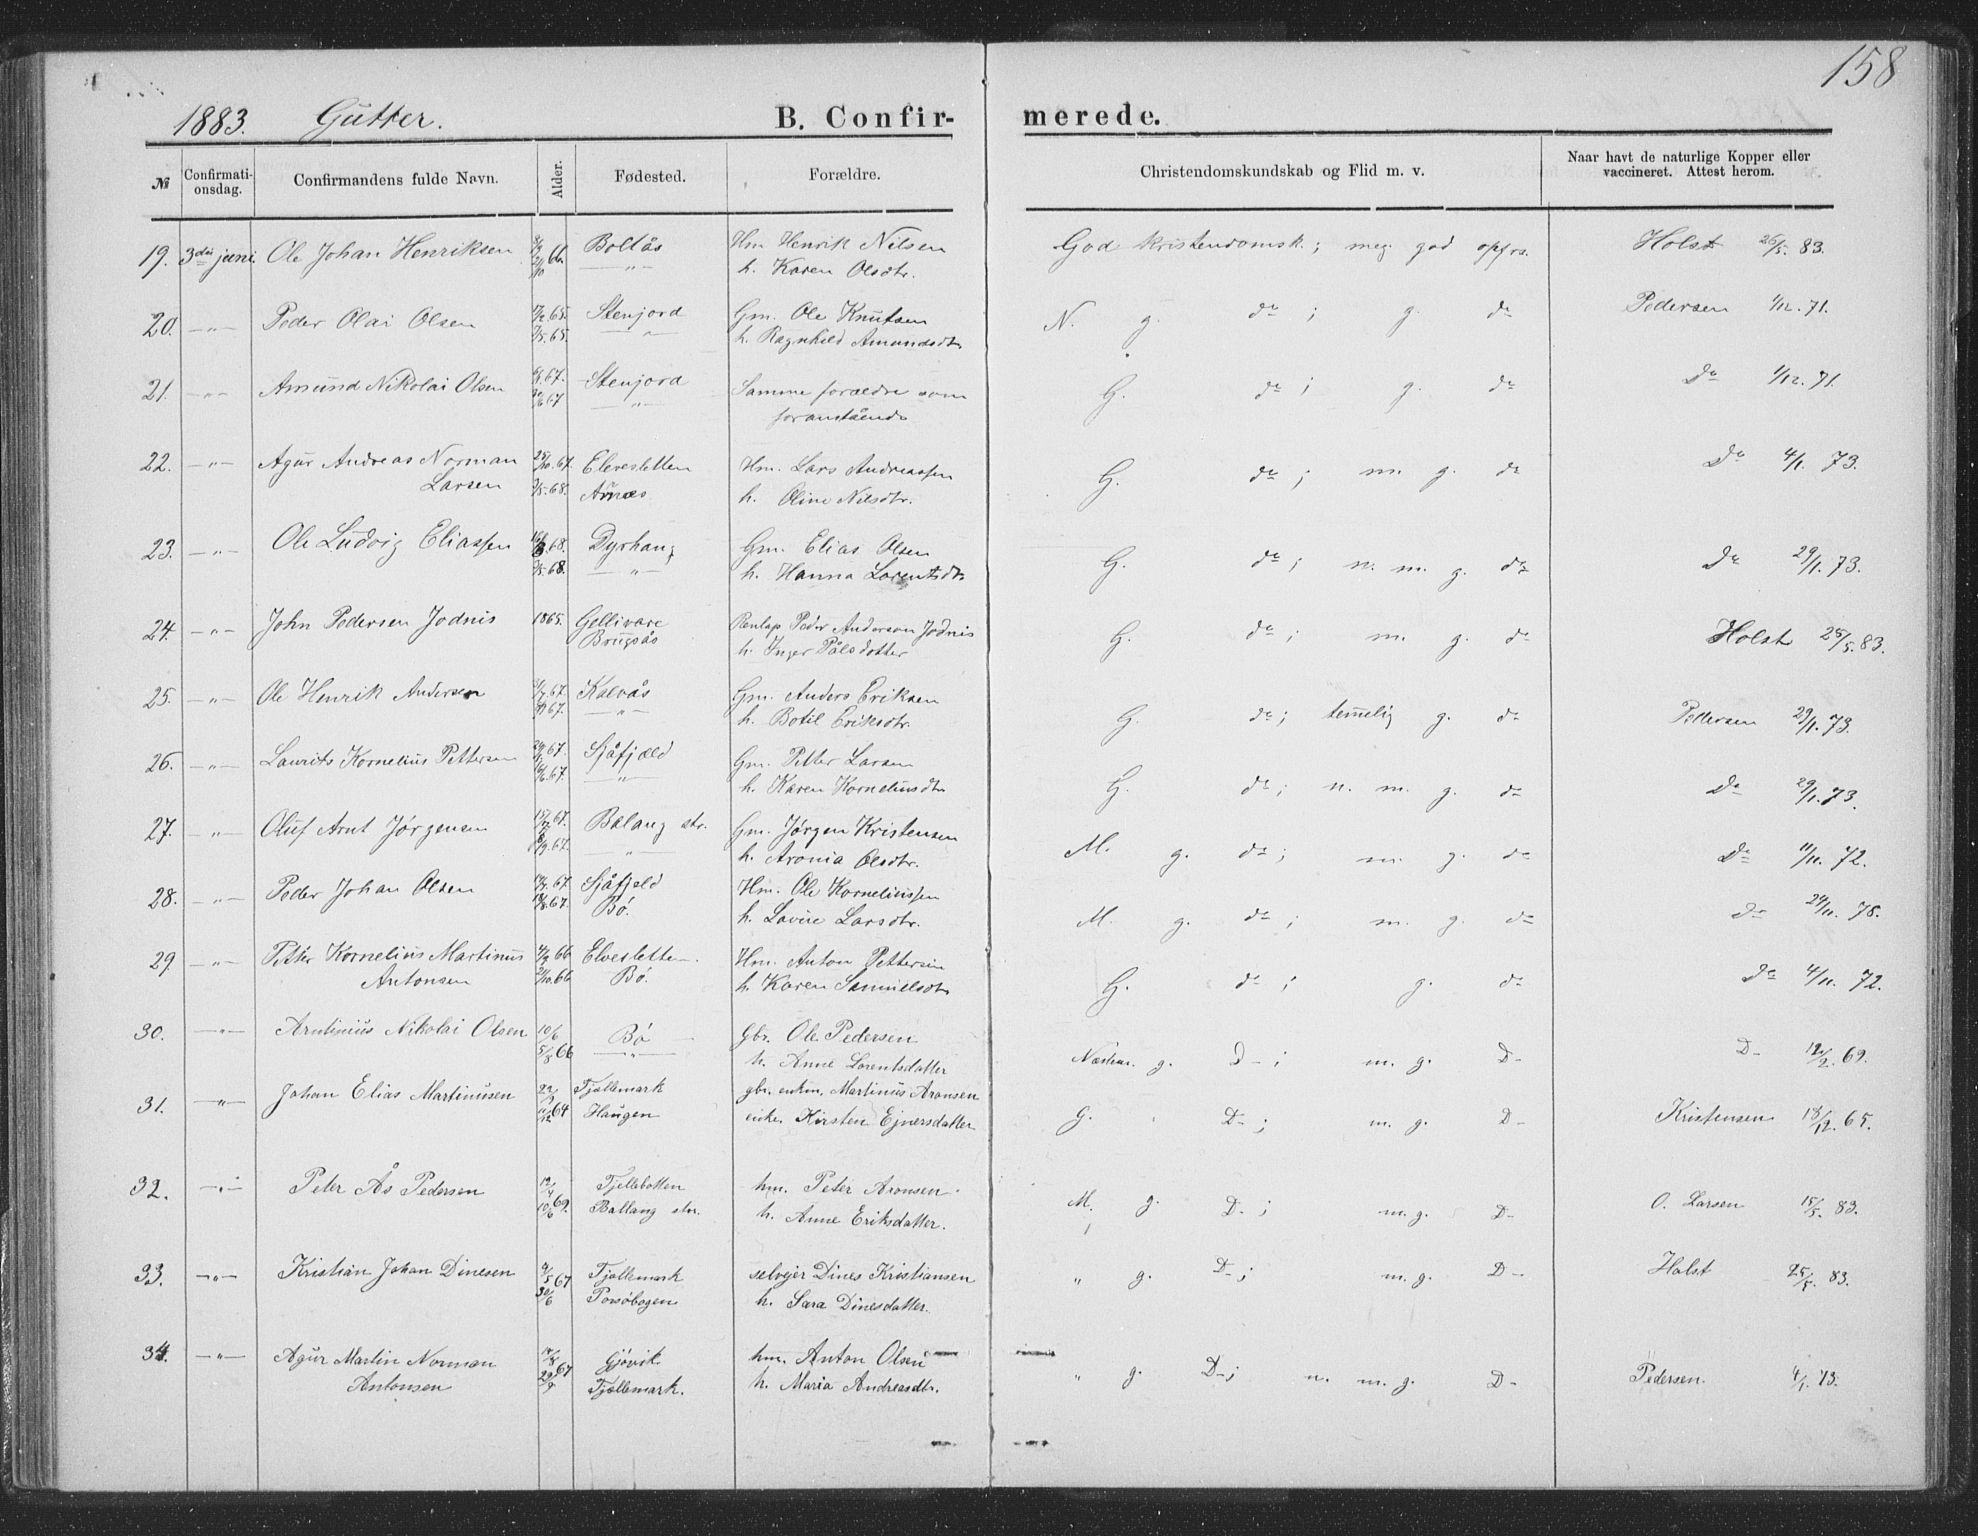 158
1883. Gutter. B. Confir- merede.
№ Confirmati-onsdag. Confirmandens fulde Navn. Alder. Fødested. Forældre. Christendomskundskab og Flid m. v. Naar havt de naturlige Kopper eller vaccineret. Attest herom.
19. 3die juni. Ole Johan Henriksen 66. Boltås Hm Henrik Nilsen God kristendomsk.; meg. god opførs. Holst 26/5. 83.
—"— h. Karen Olsdtr.
20. —"— Peder Olai Olsen 65. Stenjord Gm. Ole Knutsen N. g. do ; g. do Pedersen 1/12. 71.
/5. 65. —"— h. Ragnhild Amundsdtr.
21. —"— Amund Nikolai Olsen 67. Stenjord Samme forældre som G. do ; g. do Do 1/12. 71.
67 —"— foranstående
22. —"— Agur Andreas Norman 25/10. 67. Elvesletten Hm. Lars Andreassen G. do ; m. g. do Do 4/1. 73.
Larsen /5. 68. Arnes h. Oline Nilsdtr.
23. —"— Ole Ludvig Eliassen 68. Dyrhaug Gm. Elias Olsen G. do ; n. m. g. do Do 29/1. 73.
/5. 68. —"— h. Hanna Lorentsdtr
24. —"— John Pedersen Jodnis 1865. Gellivare Renlap Peder Anderson Jodnis G. do ; m. g. do Holst 25/5. 83.
Brugsås h. Inger Pålsdotter
25. —"— Ole Henrik Andersen 67. Kalvås Gm. Anders Eriksen G. do ; temelig g. do Pettersen 29/1. 73.
67. —"— h. Botil Eriksdtr.
26. —"— Laurits Kornelius Pettersen 67. Sjåfjæld Gm. Petter Larsen G. do ; n. m. g. do Do 29/1. 73.
/6. 67. —"— h. Karen Kornelinsdtr
27. —"— Oluf Arnt Jørgensen 67. Balang str. Gm. Jørgen Kristensen M. g. do ; m. g. do Do 11/11. 72.
/9. 67. —"— h. Aronia Olsdtr.
28. —"— Peder Johan Olsen 67. Sjåfjeld Hm. Ole Korneliussen M. g. do ; m. g. do do 24/11. 78.
/8. 67. Bö. h. Lovise Larsdtr.
29. —"— Petter Kornelius Martinus 66 Elvesletten. Hm. Anton Pettersen G. do ; g. do Do 4/11. 72.
Antonsen /10. 66 Bö. h. Karen Samuelsdtr
30. —"— Arntinius Nikolai Olsen 10/6 Bö gbr. Ole Pedersen Næsten g. D- ; m. g. D- D- 12/2. 69.
5/8 66 —"— h. Anne Lorentsdatter
31. —"— Johan Elias Martinusen 22/9 Fjællemark gbr. enkm. Martinus Aronsen G. D- ; m. g. D- Kristensen 18/12. 65.
11/12 64 Haugen enke Kirsten Ejnersdatter
32. —"— Peter Ås Pedersen 12/4 Fjellebotten hm. Peter Aronsen M. g. D- ; m. g. D- O. Larsen 15/5. 83.
10/6 69. Ballang str. h. Anne Eriksdatter.
33. —"— Kristian Johan Dinesen 9/5 67 Fjællemark selvejer Dines Kristiansen " g. D- ; m. g. D- Holst 25/5. 83.
30/6 Porsöbogen h. Sara Dinesdatter.
34. —"— Agur Martin Norman 14/8 67 Gjövik hm. Anton Olsen " g. D- ; n. m. g. D- Pedersen. 4/1. 73.
Antonsen 29/9 Fjællemark. h. Maria Andreasdtr.